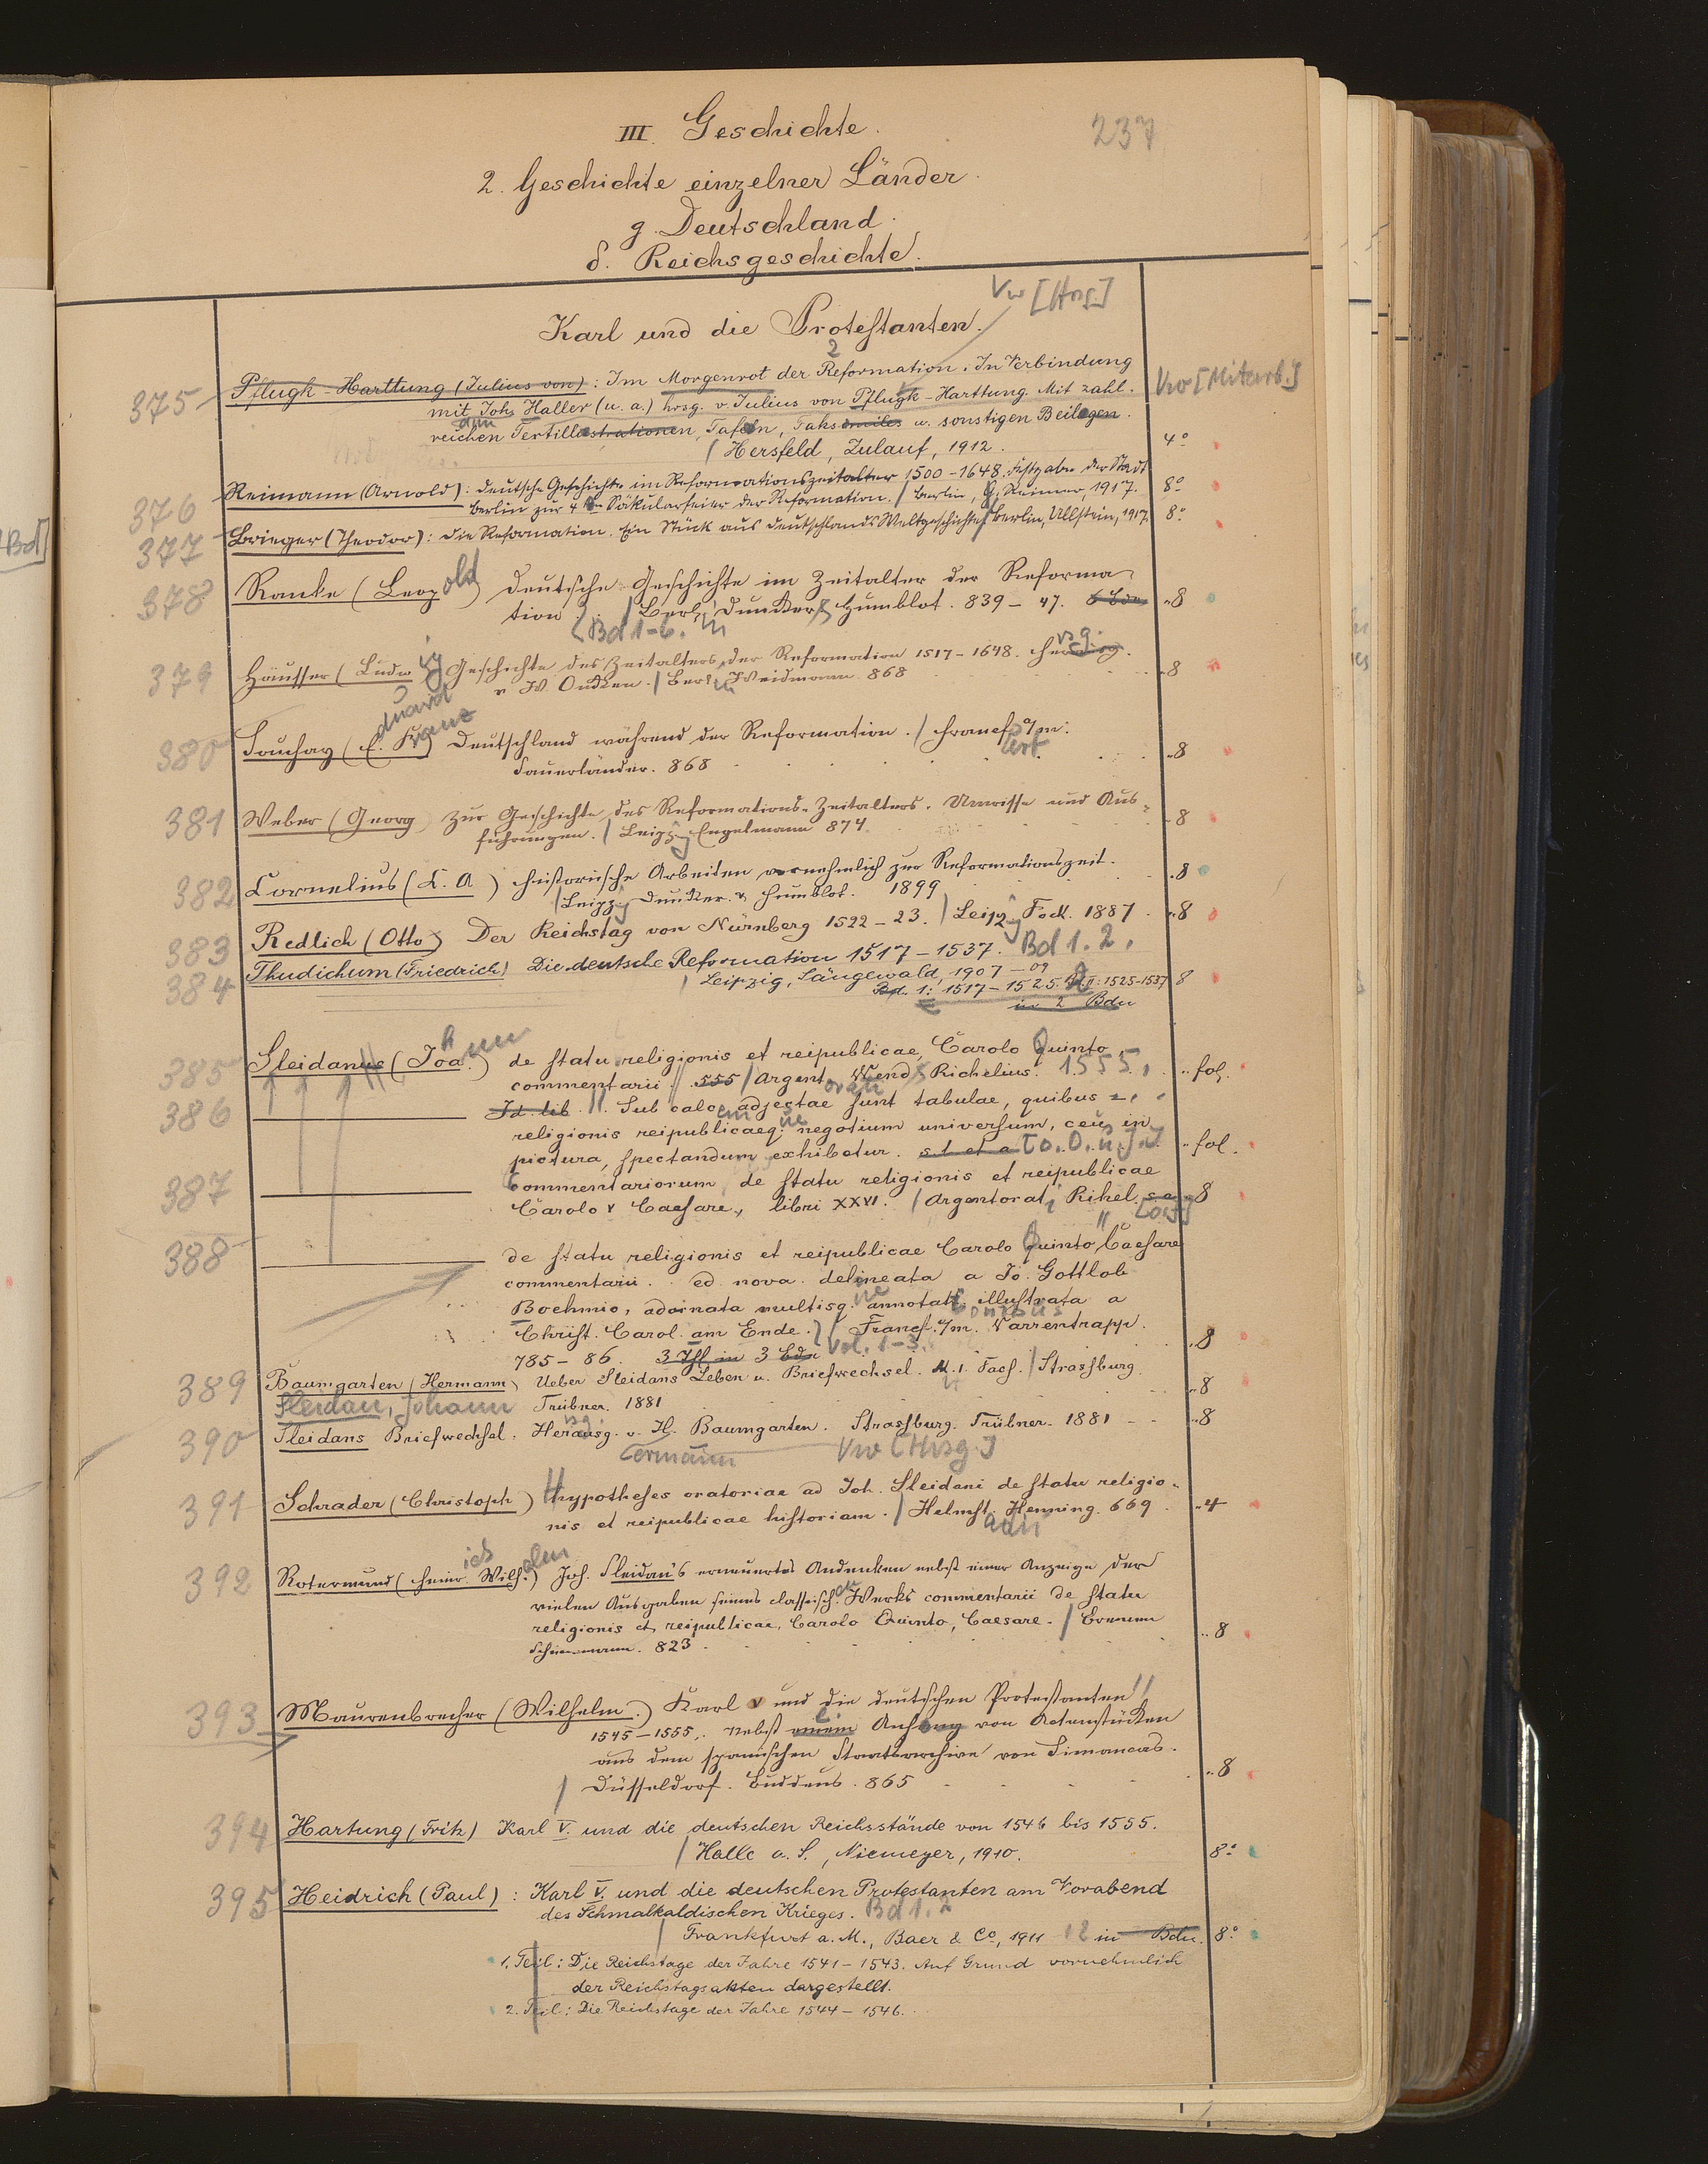 III. Geschichte.
237
2. Geschichte einzelner Länder.
g. Deutschland.
δ. Reichsgeschichte.
Vw [Hrsg.]
Karl und die Protestanten.
375 Pflugk-Harttung (Julius von): Im Morgenrot der Reformation. In Verbindung
Vw [Mitarb.]
mit Joh. Haller (u. a.) hrsg. v. Julius von Pflugk-Harttung. Mit zahl-
reichen Textillustrationen, Tafeln, Faksimiles u. sonstigen Beilagen.
/ Hersfeld, Zulauf, 1912. 4°
376 Reimann (Arnold): Deutsche Geschichte im Reformationszeitalter 1500-1648. Festgabe der Stadt
Berlin zur 4ten Säkularfeier der Reformation. / Berlin, G. Reimer, 1917. 8°
377 Brieger (Theodor): Die Reformation. Ein Stück aus Deutschlands Weltgeschichte. / Berlin, Ullstein, 1917. 8°
378 Ranke (Leopold) Deutsche Geschichte im Zeitalter der Reforma-
tion. / Berl. Duncker & Humblot. 839-47. 6 Bde „8
Bd 1-6.
379 Häusser (Ludwig) Geschichte des Zeitalters der Reformation 1517-1648. Herausg.
v. W. Oncken. / Berl. Weidmann 868 „8
380 Souchay (E. Fr.) Deutschland während der Reformation. / Francf. a/m.
Sauerländer. 868 „8
381 Weber (Georg) Zur Geschichte des Reformations-Zeitalters. Umrisse und Aus-
führungen. / Leipzig Engelmann 874. „8
382 Cornelius (C. A) Historische Arbeiten vornehmlich zur Reformationszeit.
/ Leipzig Duncker & Humblot. 1899 „8
383 Redlich (Otto) Der Reichstag von Nürnberg 1522-23. / Leipzig Fock. 1887. „8
384 Thudichum (Friedrich) Die deutsche Reformation 1517-1537. Bd 1. 2.
/ Leipzig, Sängewald, 1907-09
Bd. 1: 1517-1525. Bd II: 1525-1537 8
in 2 Bdn
385 Sleidanus (Joa.) de statu religionis et reipublicae, Carolo Quinto,
commentarii. 555 / Argent. Wend. Richelius. 1555. „fol.
386 Id. lib. Sub calcem adjectae sunt tabulae, quibus
religionis reipublicaeq. negotium universum, ceu in
pictura, spectandum exhibetur. s. l. et a [o. O. u. J.] „fol.
387 Commentariorum de statu religionis et reipublicae
Carolo V Caesare, libri XXVI. / Argentorati Rihel. s. a. „8
388 de statu religionis et reipublicae Carolo Quinto Caesare
commentarii. ed nova. delineata a Jo. Gottlob
Boehmio, adornata multisq. annotatt. illustrata a
Christ. Carol. am Ende. / Francf. a/m. Varrentrapp.
785-86. 3 Thl in 3 Bdn Vol. 1-3. „8
389 Baumgarten (Hermann) Ueber Sleidans Leben u. Briefwechsel. M. 1. Facs. / Strassburg
Trübner. 1881 „8
Sleidan, Johann
390 Sleidans Briefwechsel. Herausg. v. H. Baumgarten. Strassburg. Trübner. 1881 „8
ermann Vw [Hrsg.]
391 Schrader (Christoph) Hypotheses oratoriae ad Joh. Sleidani de statu religio-
nis et reipublicae historiam. / Helmst. Henning. 669. „4
392 Rotermund (Heinr. Wilh.) Joh. Sleidan's erneuertes Andenken nebst einer Anzeige der
vielen Ausgaben seines classisch. Werks commentarii de statu
religionis et reipublicae, Carolo Quinto, Caesare. / Bremen
823 „8
393 Maurenbrecher (Wilhelm.) Karl V und die deutschen Protestanten
1545-1555. Nebst einem Anhang von Actenstücken
aus dem spanischen Staatsarchive von Simancas.
/ Düsseldorf. Buddeus. 865 „8
394 Hartung (Fritz) Karl V. und die deutschen Reichsstände von 1546 bis 1555.
/ Halle a. S., Niemeyer, 1910. 8°
395 Heidrich (Paul): Karl V. und die deutschen Protestanten am Vorabend
des Schmalkaldischen Krieges. Bd 1. 2
/ Frankfurt a. M., Baer & Co, 1911 12 in Bdn. 8°
1. Teil: Die Reichstage der Jahre 1541-1543. Auf Grund vornehmlich
der Reichstagsakten dargestellt.
2. Teil: Die Reichstage der Jahre 1544-1546.